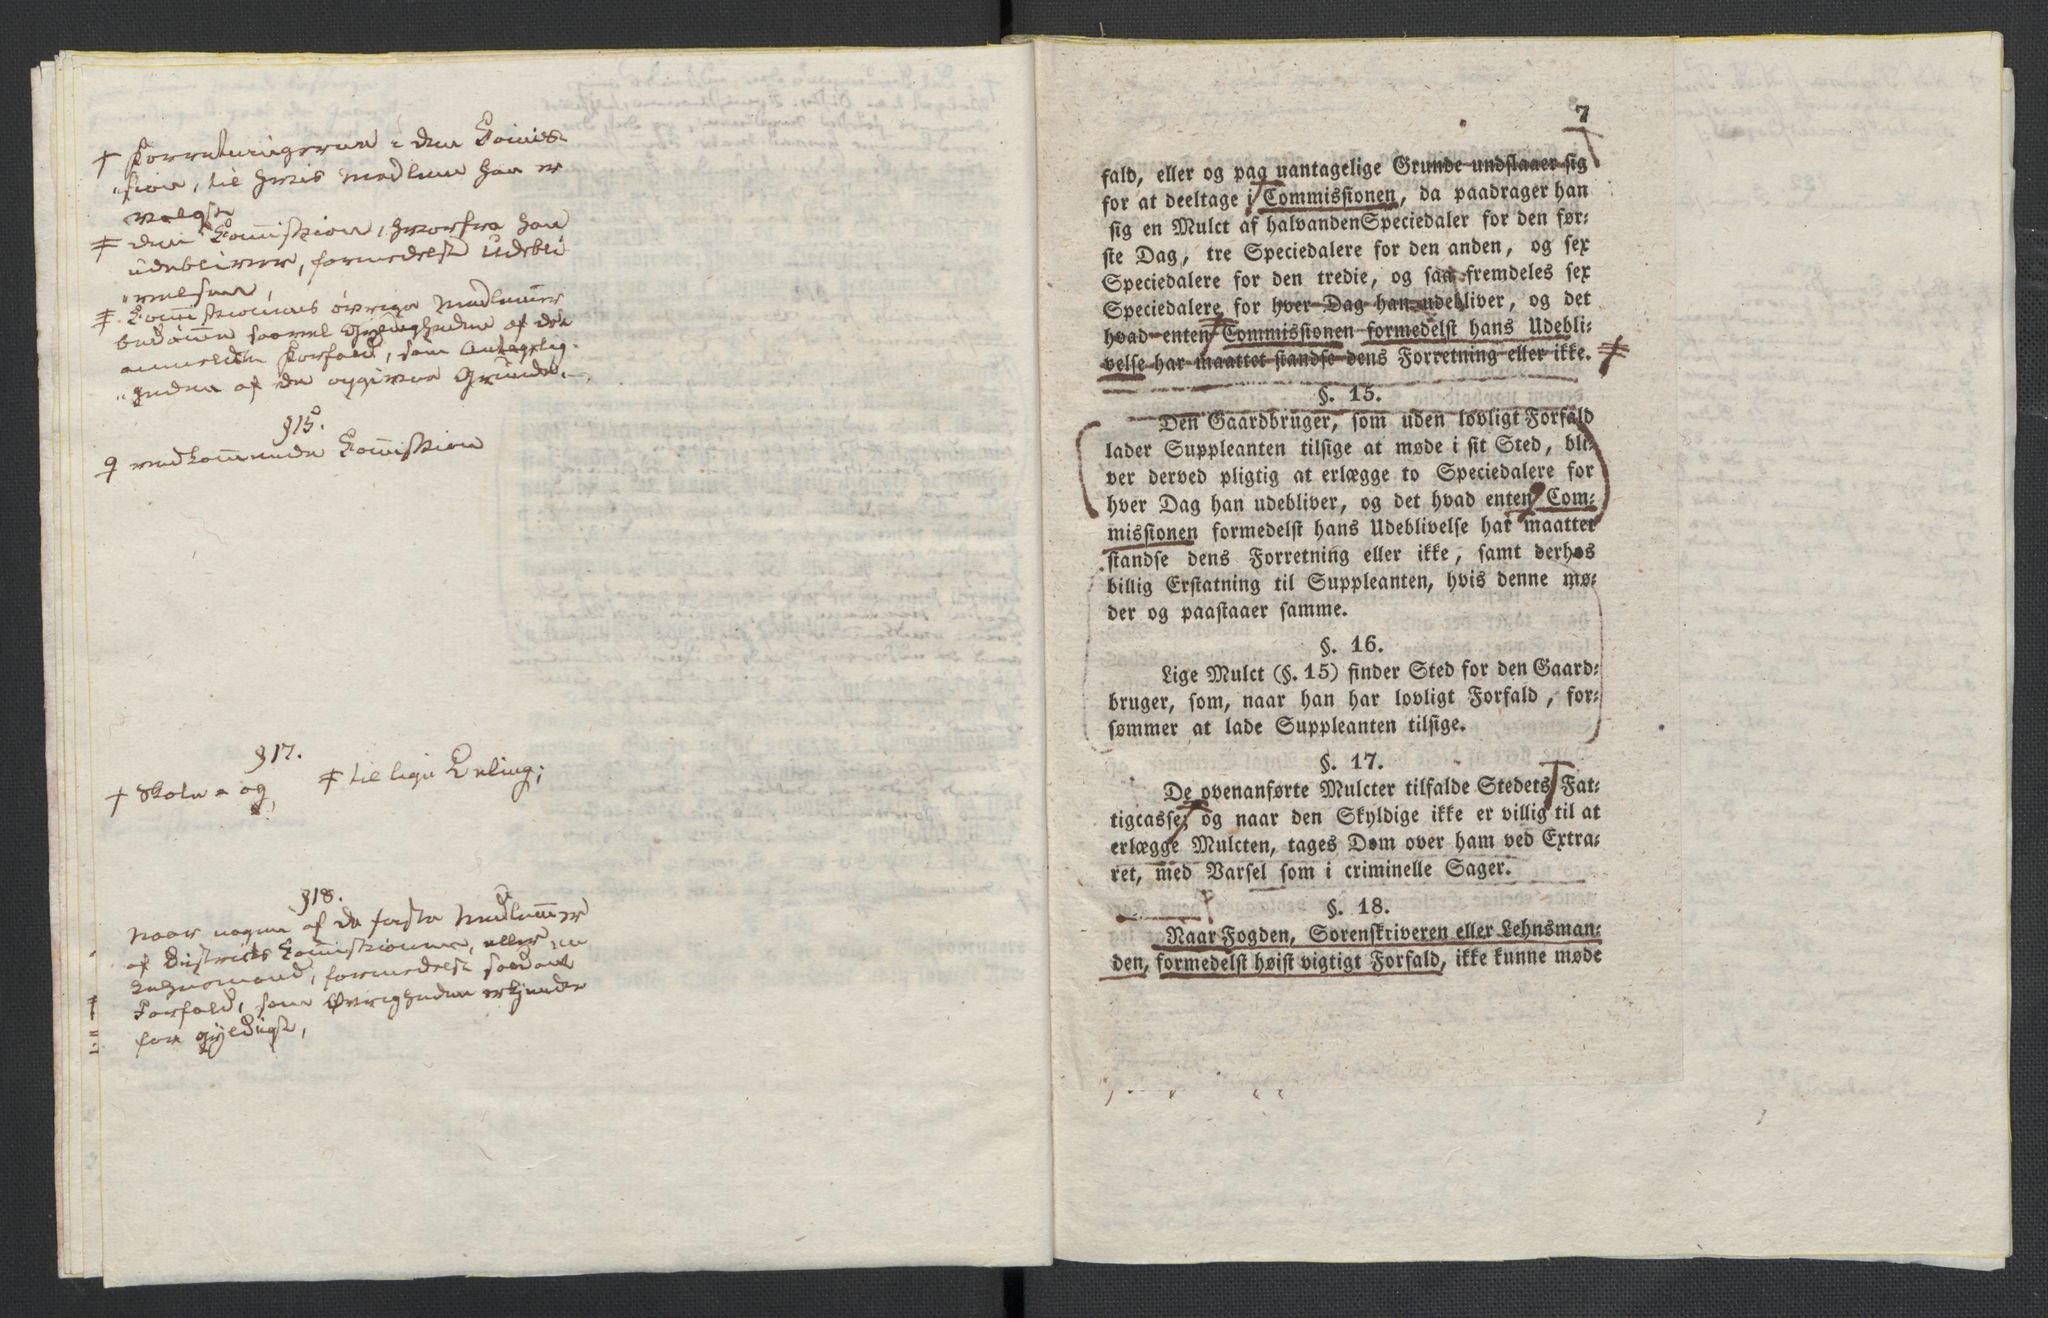 † Forretningerne i den Comis-
"sion, til hvis Medlem han er
valgt
‡ den Commission, hvorfra han
udebliver, formedelst Udebli
"velsen,
‡ Commissionens øvrige Medlemmer
bedømme saavel Gyldigheden af det
anmeldte Forfald, som Antagelig-
"heden af de opgivne Grunde.
§ 15.
vedkommende Commission
§ 17.
† Skole- og
‡ til lige Deling;
§ 18.
Naar nogen af de faste Medlemmer
af Districts Commissionen, eller en
Lehnsmand, formedelst saadant
Forfald, som Øvrigheden erkjender
for gyldigt,
7
fald, eller og paa uantagelige Grunde undslaaer sig
for at deeltage i Commissionen, da paadrager han
sig en Mulct af halvandenSpeciedaler for den før-
ste Dag, tre Speciedalere for den anden, og sex
Speciedalere for den tredie, og saa fremdeles sex
Speciedalere for hver Dag han udebliver, og det
hvad enten Commissionen formedelst hans Udebli-
velse har maattet standse dens Forretning eller ikke. ‡
§. 15.
Den Gaardbruger, som uden lovligt Forfald
lader Suppleanten tilsige at møde i sit Sted, bli-
ver derved pligtig at erlægge to Speciedalere for
hver Dag han udebliver, og det hvad enten Com-
missionen formedelst hans Udeblivelse har maattet
standse dens Forretning eller ikke, samt derhos
billig Erstatning til Suppleanten, hvis denne mø-
der og paastaaer samme.
§. 16.
Lige Mulct (§. 15) finder Sted for den Gaard-
bruger, som, naar han har lovligt Forfald, for-
sømmer at lade Suppleanten tilsige.
§. 17.
De ovenanførte Mulcter tilfalde Stedets Fat-
tigcasse; og naar den Skyldige ikke er villig til at
erlægge Mulcten, tages Dom over ham ved Extra-
ret, med Varsel som i criminelle Sager.
§. 18.
Naar Fogden, Sorenskriveren eller Lehnsman-
den, formedelst høist vigtigt Forfald, ikke kunne møde